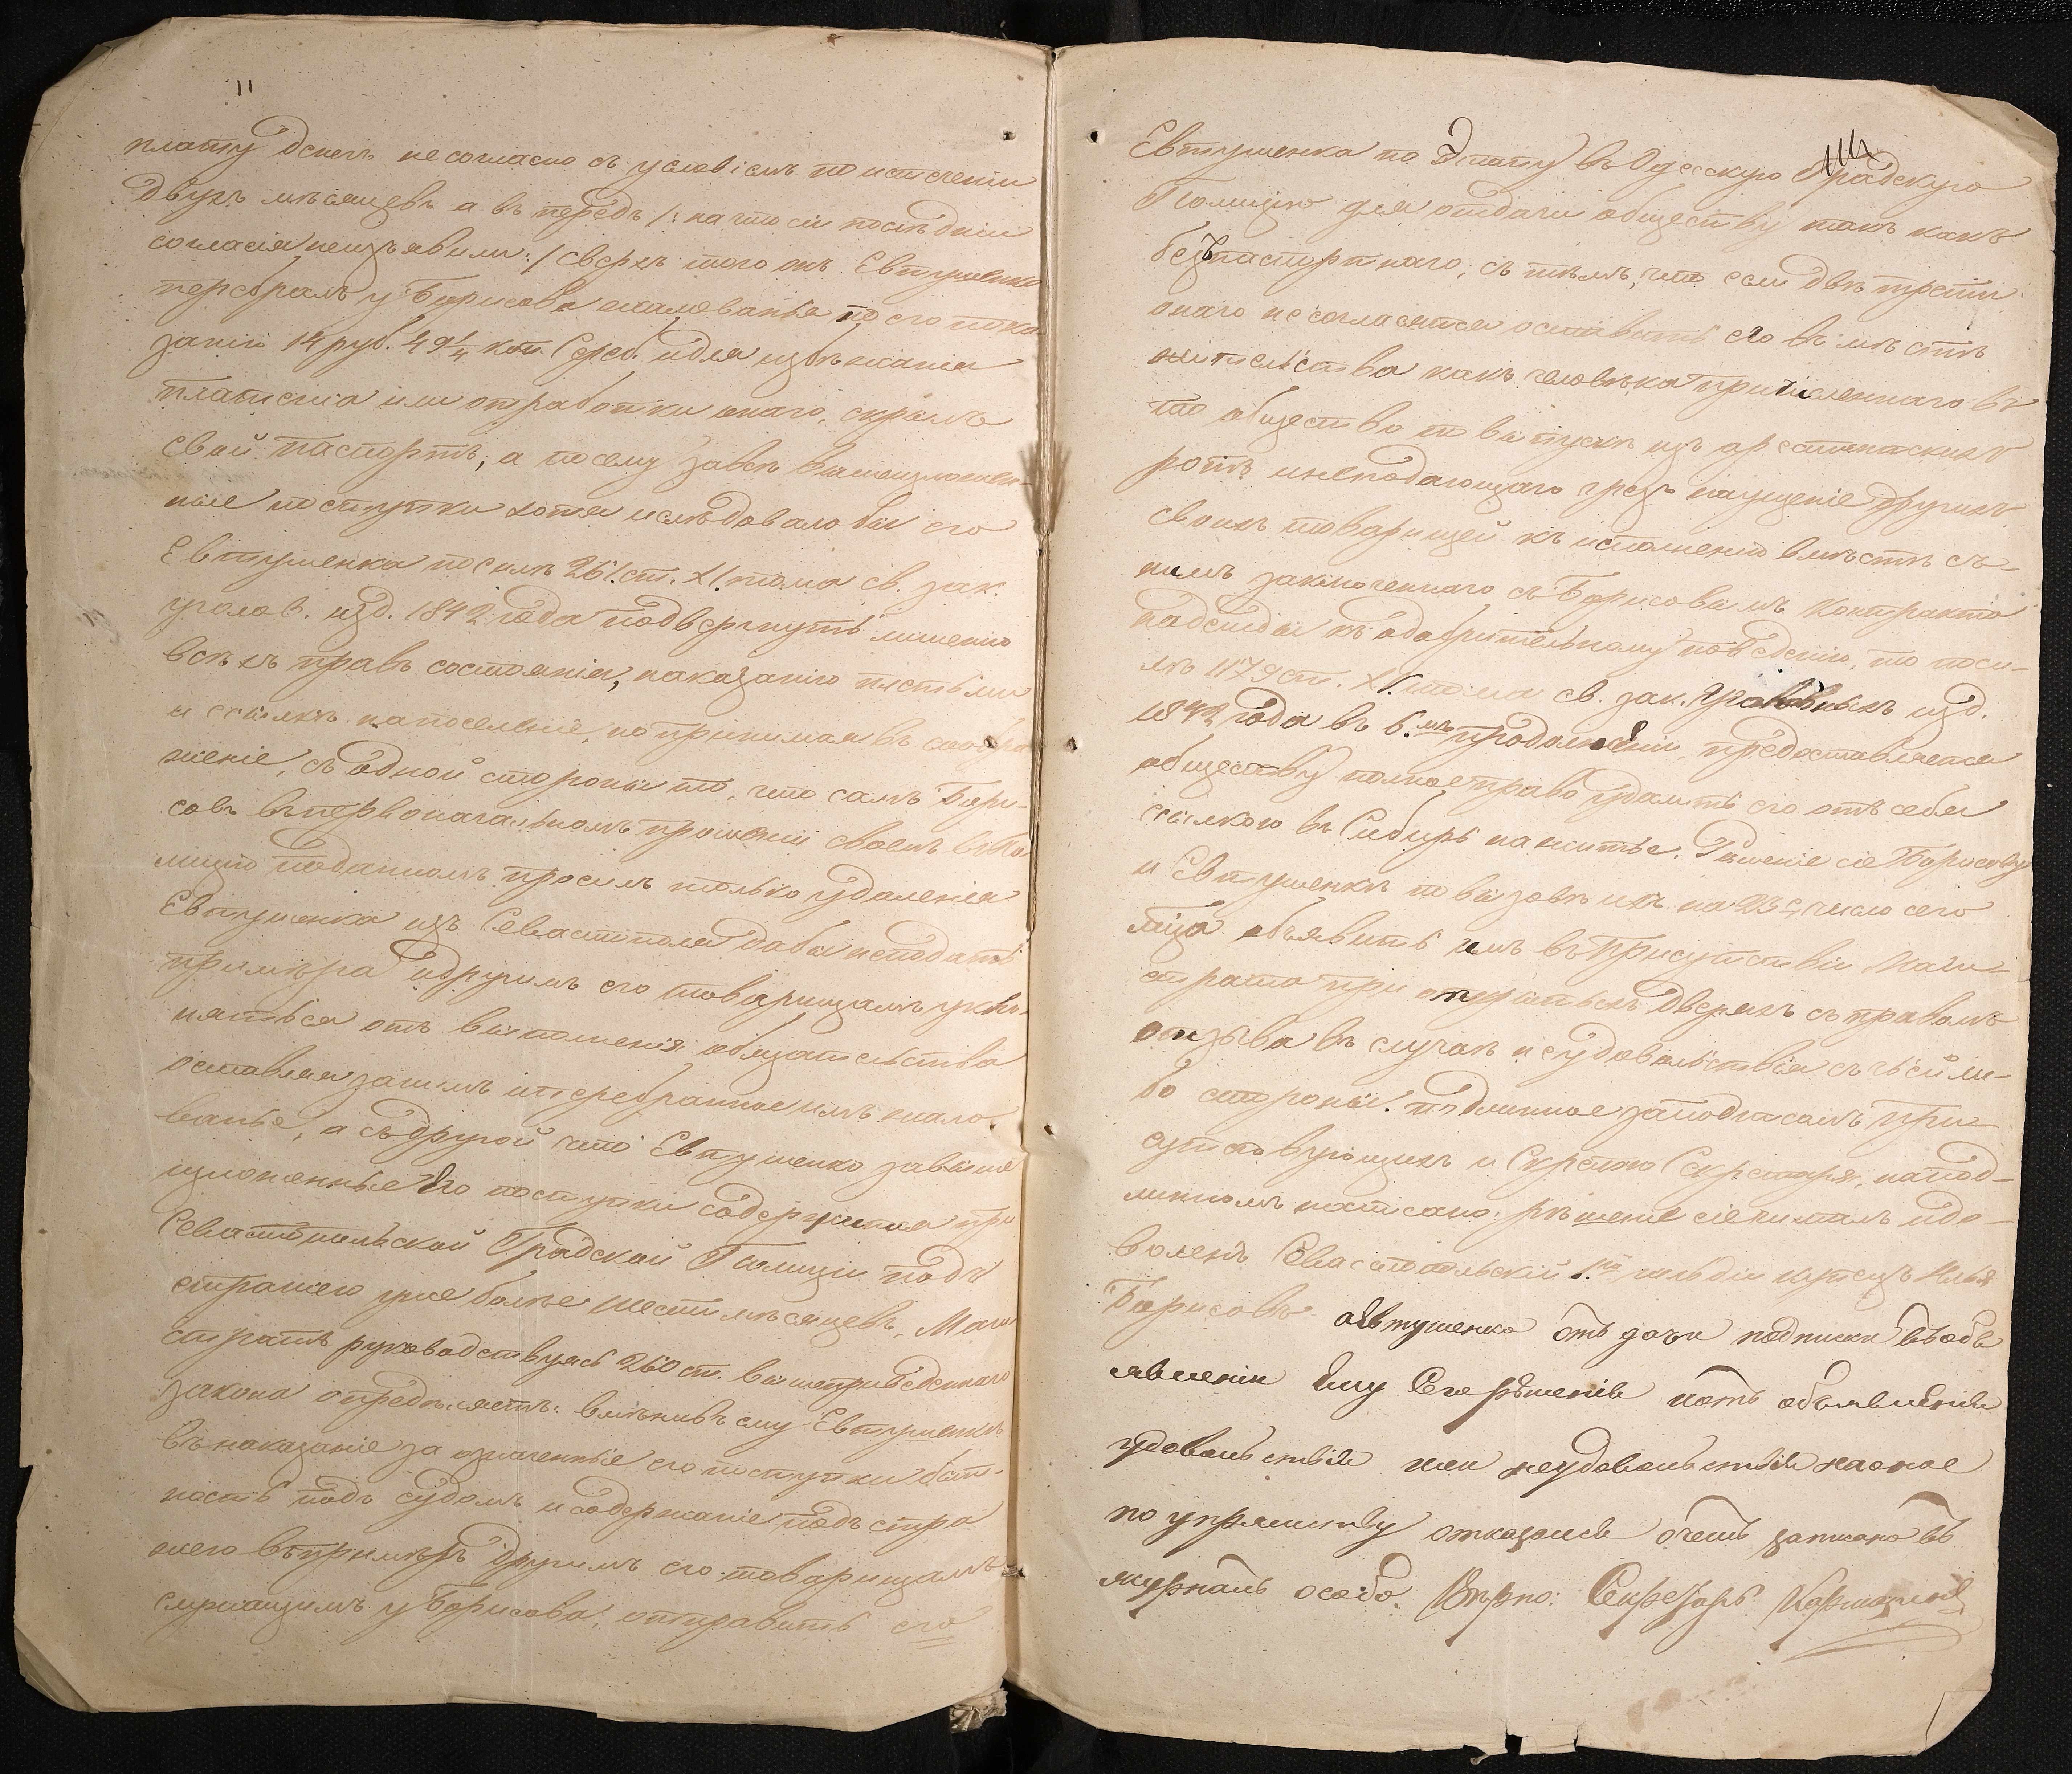 11
плату денегъ несогласно съ условіемъ по истеченіи
двухъ мѣсяцевъ а въ передъ /: на что сіи послѣдніи
согласія неизъявили :/ сверхъ того онъ Евтушенко
перебралъ у Борисова жалованья по его пока
занію 14 руб. 49¼ коп. Сереб. и для избѣжанія
платежа или отработки онаго, скрылъ
свой паспортъ, а посему завсѣ вышеизложен-
ные поступки хотя и слѣдовало бы его
Евтушенка посилѣ 261. ст. XV тома св. зак.
уголов. изд. 1842 года подвергнуть лишенію
всѣхъ правъ состоянія, наказанію плетьми
и ссылкѣ на поселеніе, но принимая въ сообра
женіе, съ одной стороны то, что самъ Бори-
совъ въ первоначальномъ прошеніи своемъ въ По
лицію поданномъ просилъ только удаленія
Евтушенка изъ Севастополя дабы неподать
примѣра и другимъ его товарищамъ укло-
няться отъ выполненія обязательства
оставляя за нимъ и перебранное имъ жало-
ванье, а съ другой что Евтушенко завыше
изложенные его поступки содержится при
Севастопольской Градской Полиціи подъ
стражею уже болѣе шести мѣсяцевъ, Маги
стратъ руководствуясь 260 ст. вышеприведеннаго
закона опредѣляетъ: вмѣнивъ ему Евтушенкѣ
въ наказаніе за означенные его поступки быт-
ность подъ судомъ и содержаніе подъ стра
жею въ примѣръ другимъ его товарищамъ
служащимъ у Борисова, отправить его
Евтушенка по этапу въ Одесскую Градскую
Полицію для отдачи обществу такъ какъ
безпаспортнаго, съ тѣмъ, что если двѣ трети
онаго несогласятся оставить его въ мѣстѣ
жительства какъ человѣка причисленнаго въ
то общество по выпускѣ изъ арестантскихъ
ротъ и неподающаго чрезъ наущеніе другихъ
своихъ товарищей къ исполненію вмѣстѣ съ
нимъ заключеннаго съ Борисовымъ контракта
надежды къ одобрительному поведенію, то поси-
лѣ 1179 ст. XV. тома св. зак. уголовныхъ изд.
1842 года въ 6.мъ продолженіи, предоставляется
обществу полное право удалить его отъ себя
ссылкою въ Сибирь на житье. Рѣшеніе сіе Борисову
и Евтушенкѣ по вызовѣ ихъ на 23е число сего
мѣца объявить имъ въ присутствіи Маги-
страта при открытыхъ дверяхъ съ правомъ
отзыва въ случаѣ неудовольствія съ чьей ли-
бо стороны. подлинное заподписомъ при-
сутствующихъ и Скрепою Секретаря, напод-
линномъ написано: рѣшеніе сіе читалъ и до-
воленъ Севастопольскій 1.й гильдіи купецъ Илья
Борисовъ а Евтушенко отъ дачи подписки въ объ
явленіи Ему Сего рѣшенія и отъ объявленія
удовольствія или неудовольствія на оное
по упрямству отказался о чемъ записано въ
журналъ особо. Вѣрно: Секретарь